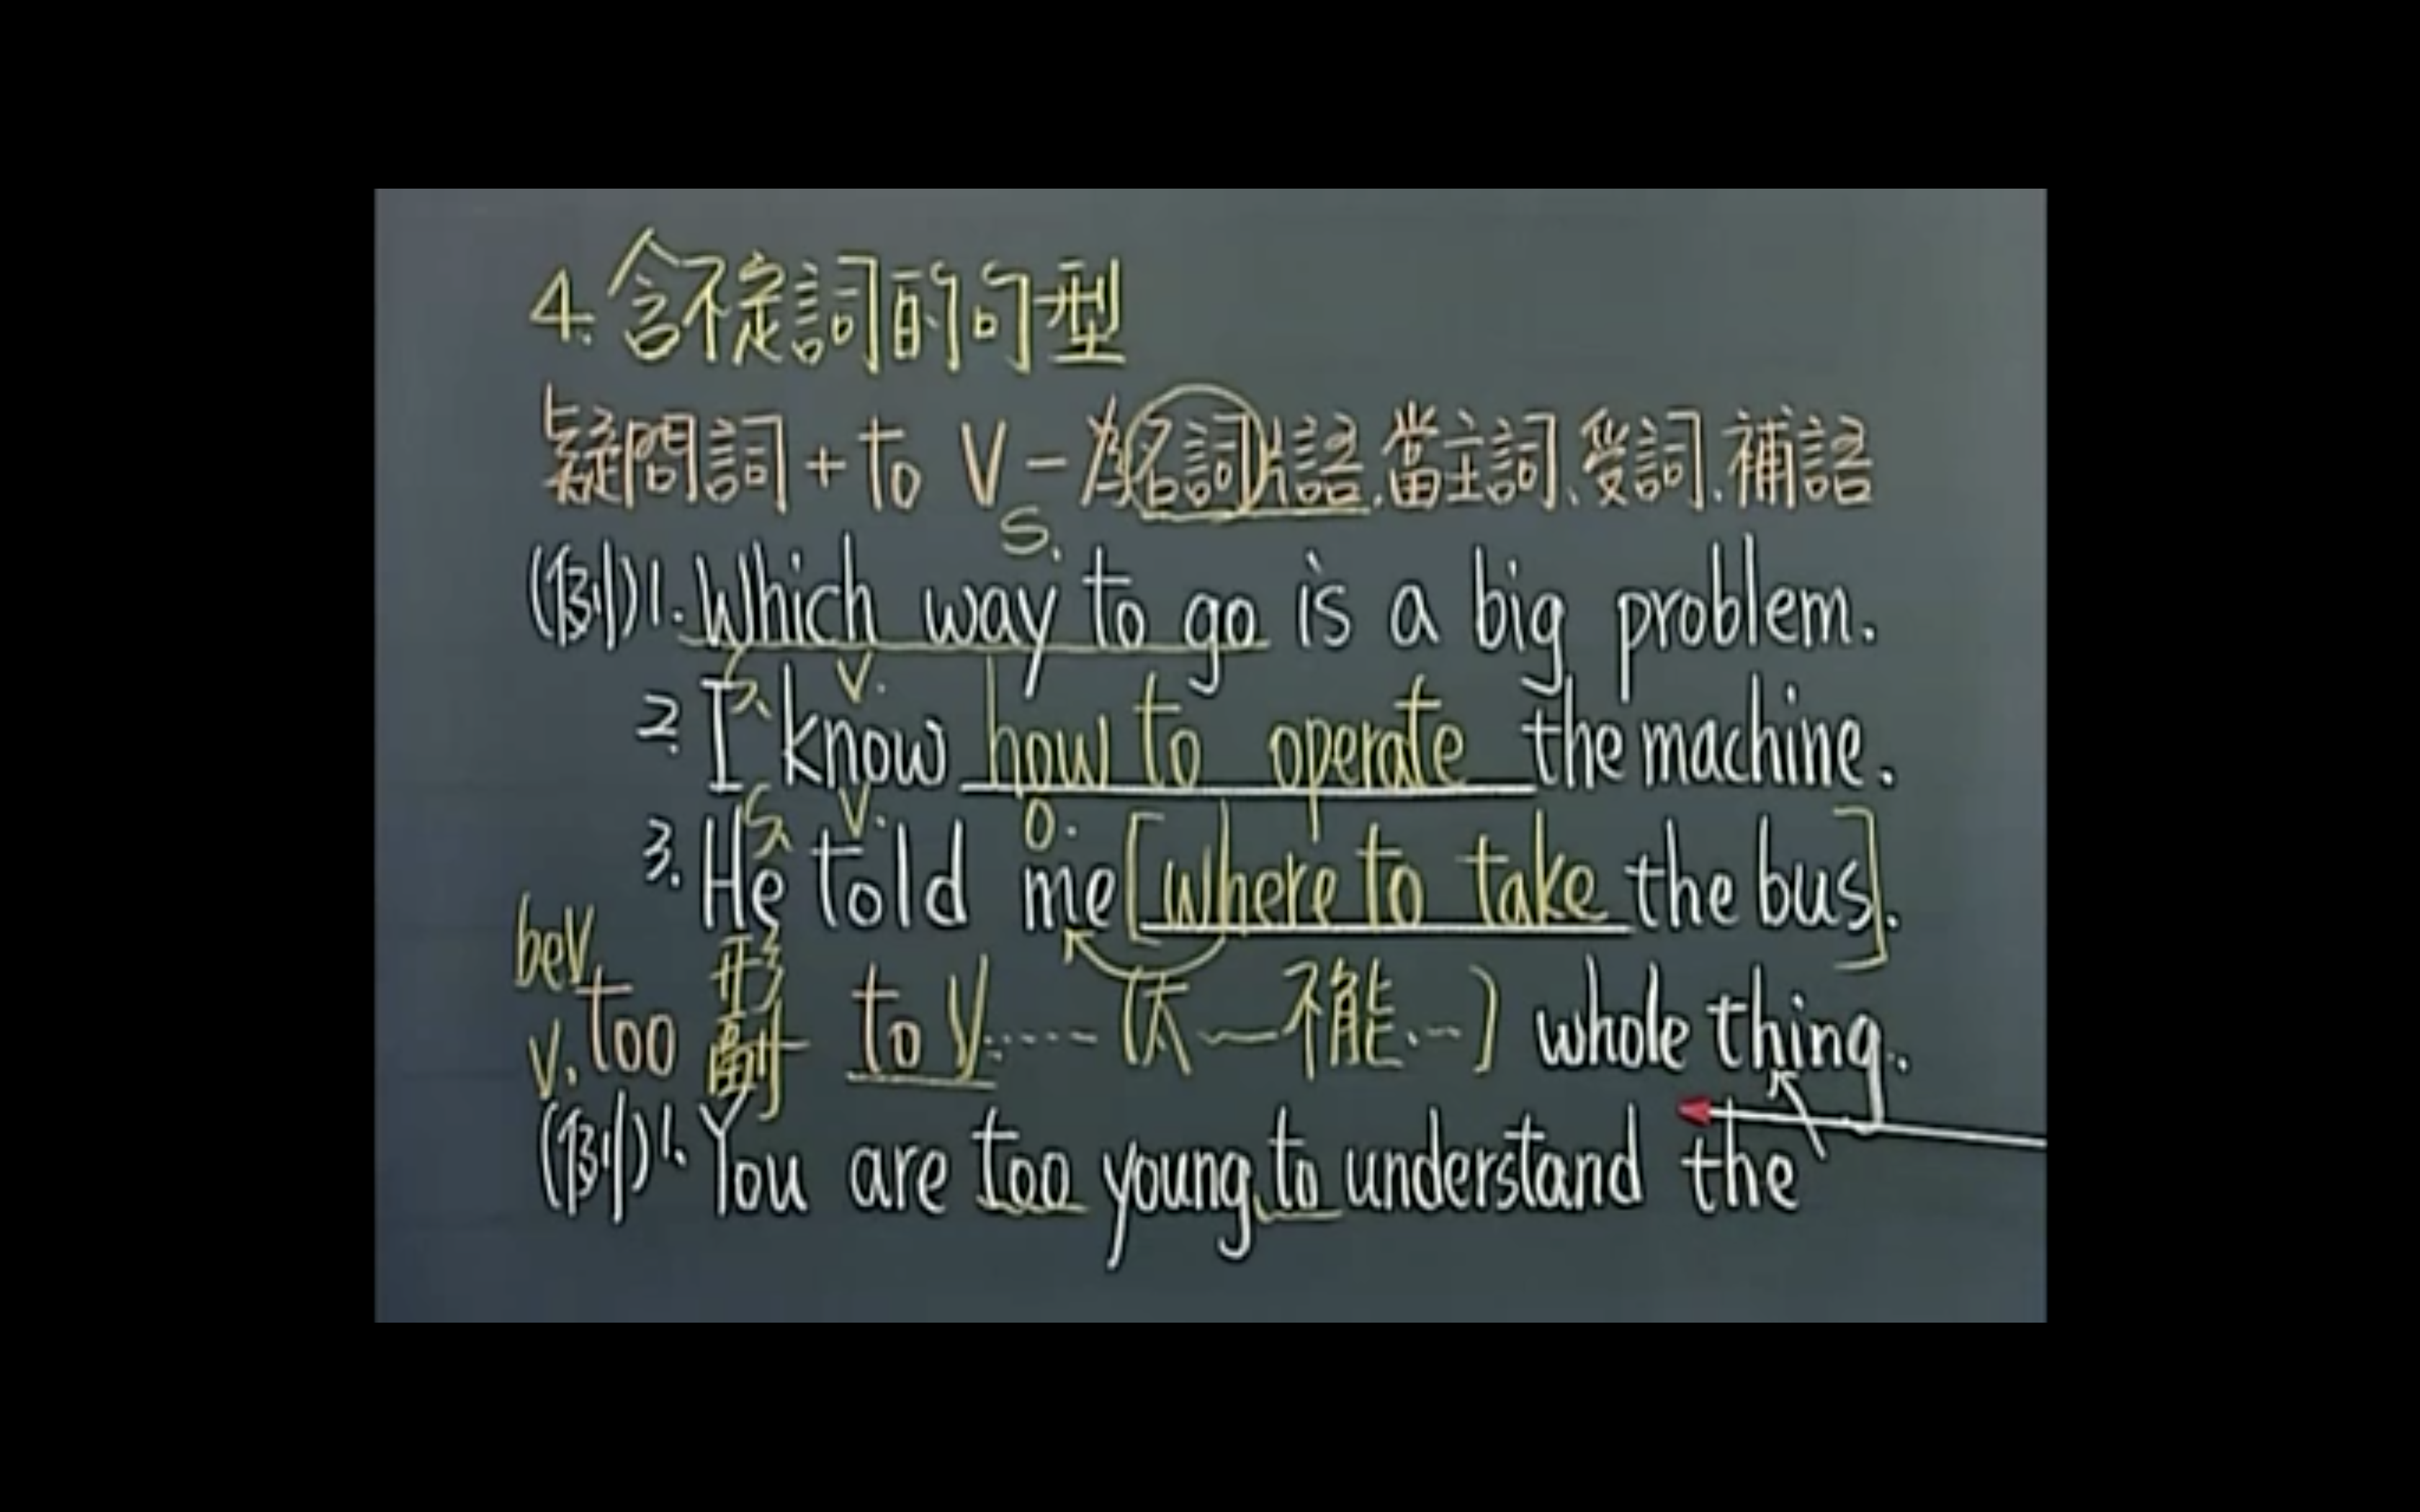 4. 含不定詞的句型
疑問詞 + to V - 為名詞片語, 當主詞、受詞、補語
S.
(例) 1. Which way to go is a big problem.
S. V.
2. I know how to operate the machine.
S. V. O.
3. He told me [where to take the bus].
beV 形
V. too 副 to V...... (太~不能...) whole thing.
(例) 1. You are too young to understand the